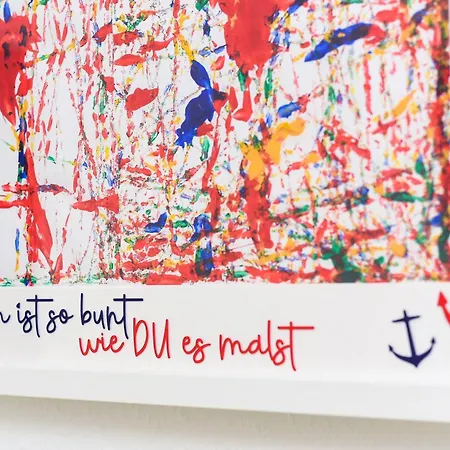 ist so bunt
wie DU es malst